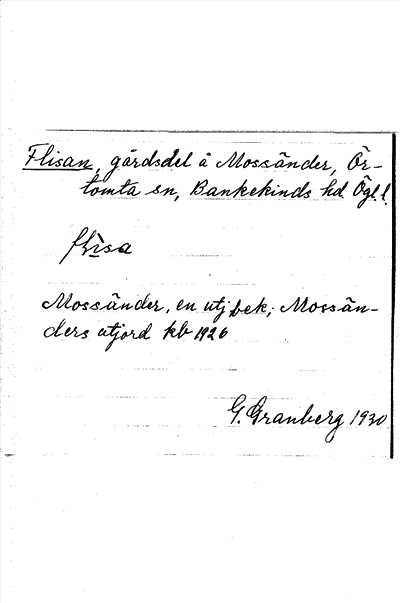 Flisan, gårdsdel å Mossänder, Ör-
tomta sn, Bankekinds hd Ögl.
flisa
Mossänder, en utj bek; Mossän-
ders utjord kb 1926
G. Granberg 1930